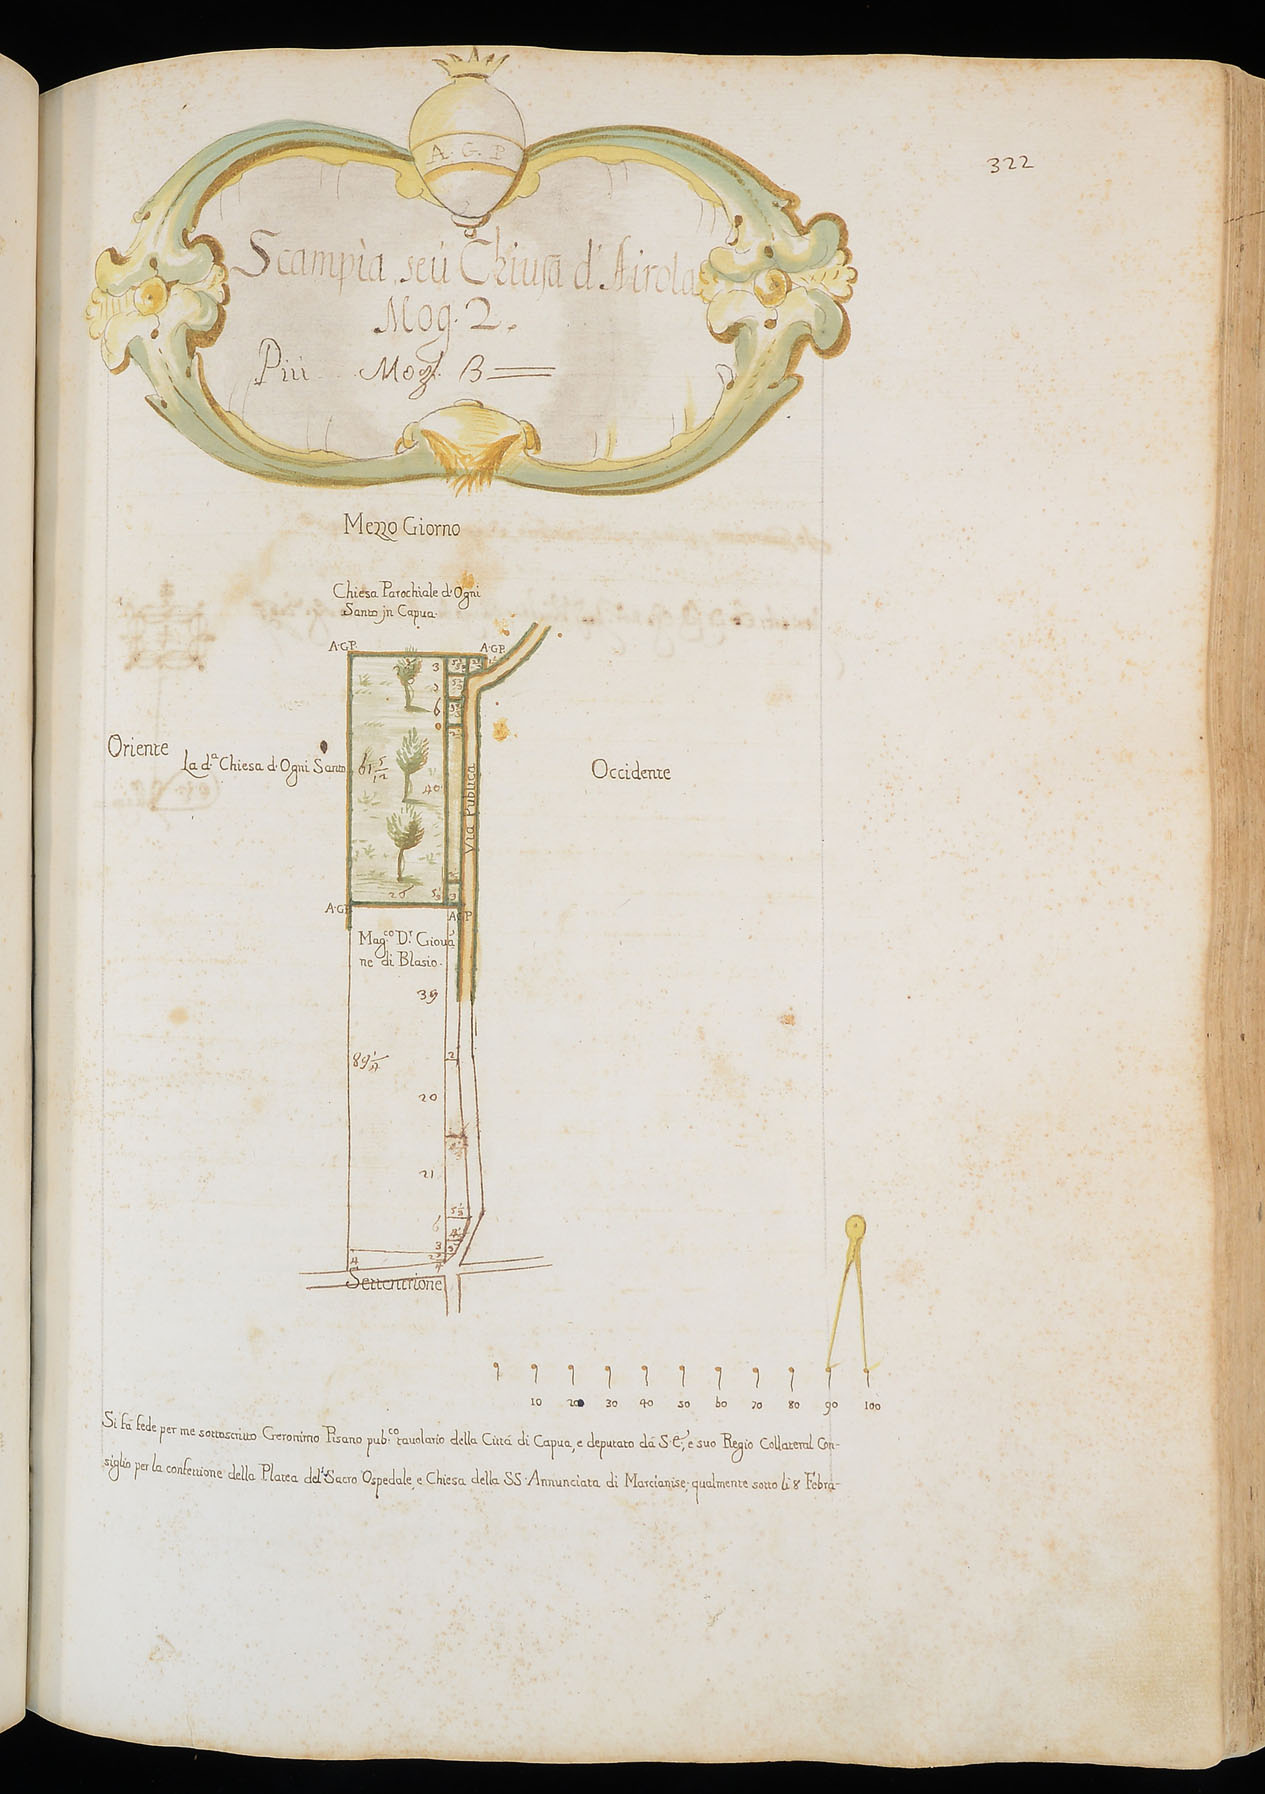 322
A. G. P
Scampìa, seù Chiusa d'Airola
Mog. 2.
Più Mog. B
Mezzo Giorno
Chiesa Parochiale d'Ogni
Santo jn Capua.
A·G·P.
A·G·P.
3
6
Oriente
La d.ª Chiesa d'Ogni Santo
61 5/12
40
Via Publica
Occidente
A·G·P.
A G P
Mag.co D.r Gioua
ne di Blasio.
39
2
20
21
5 1/3
6
3
4
Settentrione
10 20 30 40 50 60 70 80 90 100
Si fà fede per me sottoscritto Geronimo Pisano pub.co tauolario della Città di Capua, e deputato dà S. E., e suo Regio Collateral Con-
siglio per la confettione della Platea del Sacro Ospedale, e Chiesa della SS. Annunciata di Marcianise; qualmente sotto li 8 Febra-